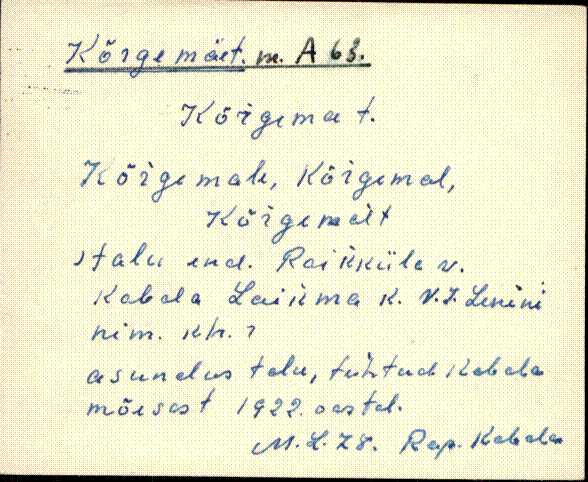 Kõrgemäet. m. A 63.
Kõrgemat.
Kõrgemale, Kõrgemal,
Kõrgemält
talu end. Raikküla v.
Kabala Laikma k. V. I. Lenini
nim. kh.
asundustalu, tehtud Kabala
mõisast 1922. aastal.
M. L. 78. Rap. Kabala